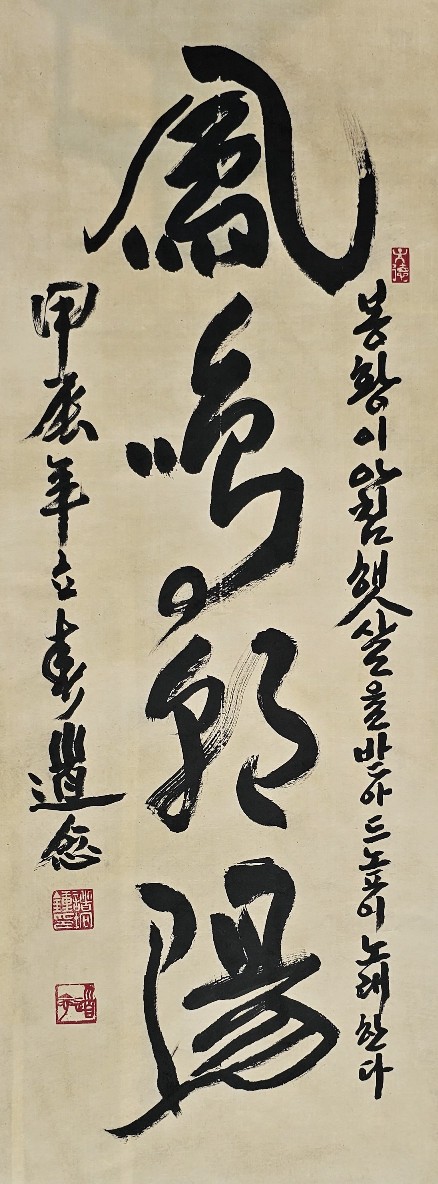 봉황이 아침 햇살을 받아 드높이 노래한다
鳳鳴朝陽
甲辰年立春 道念